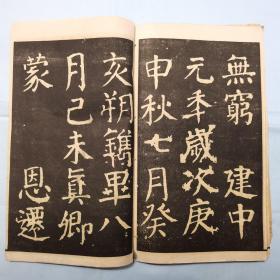 無窮 建中
元年歲次庚
申秋七月癸
亥朔鐫畢八
月己未真卿
蒙 恩遷